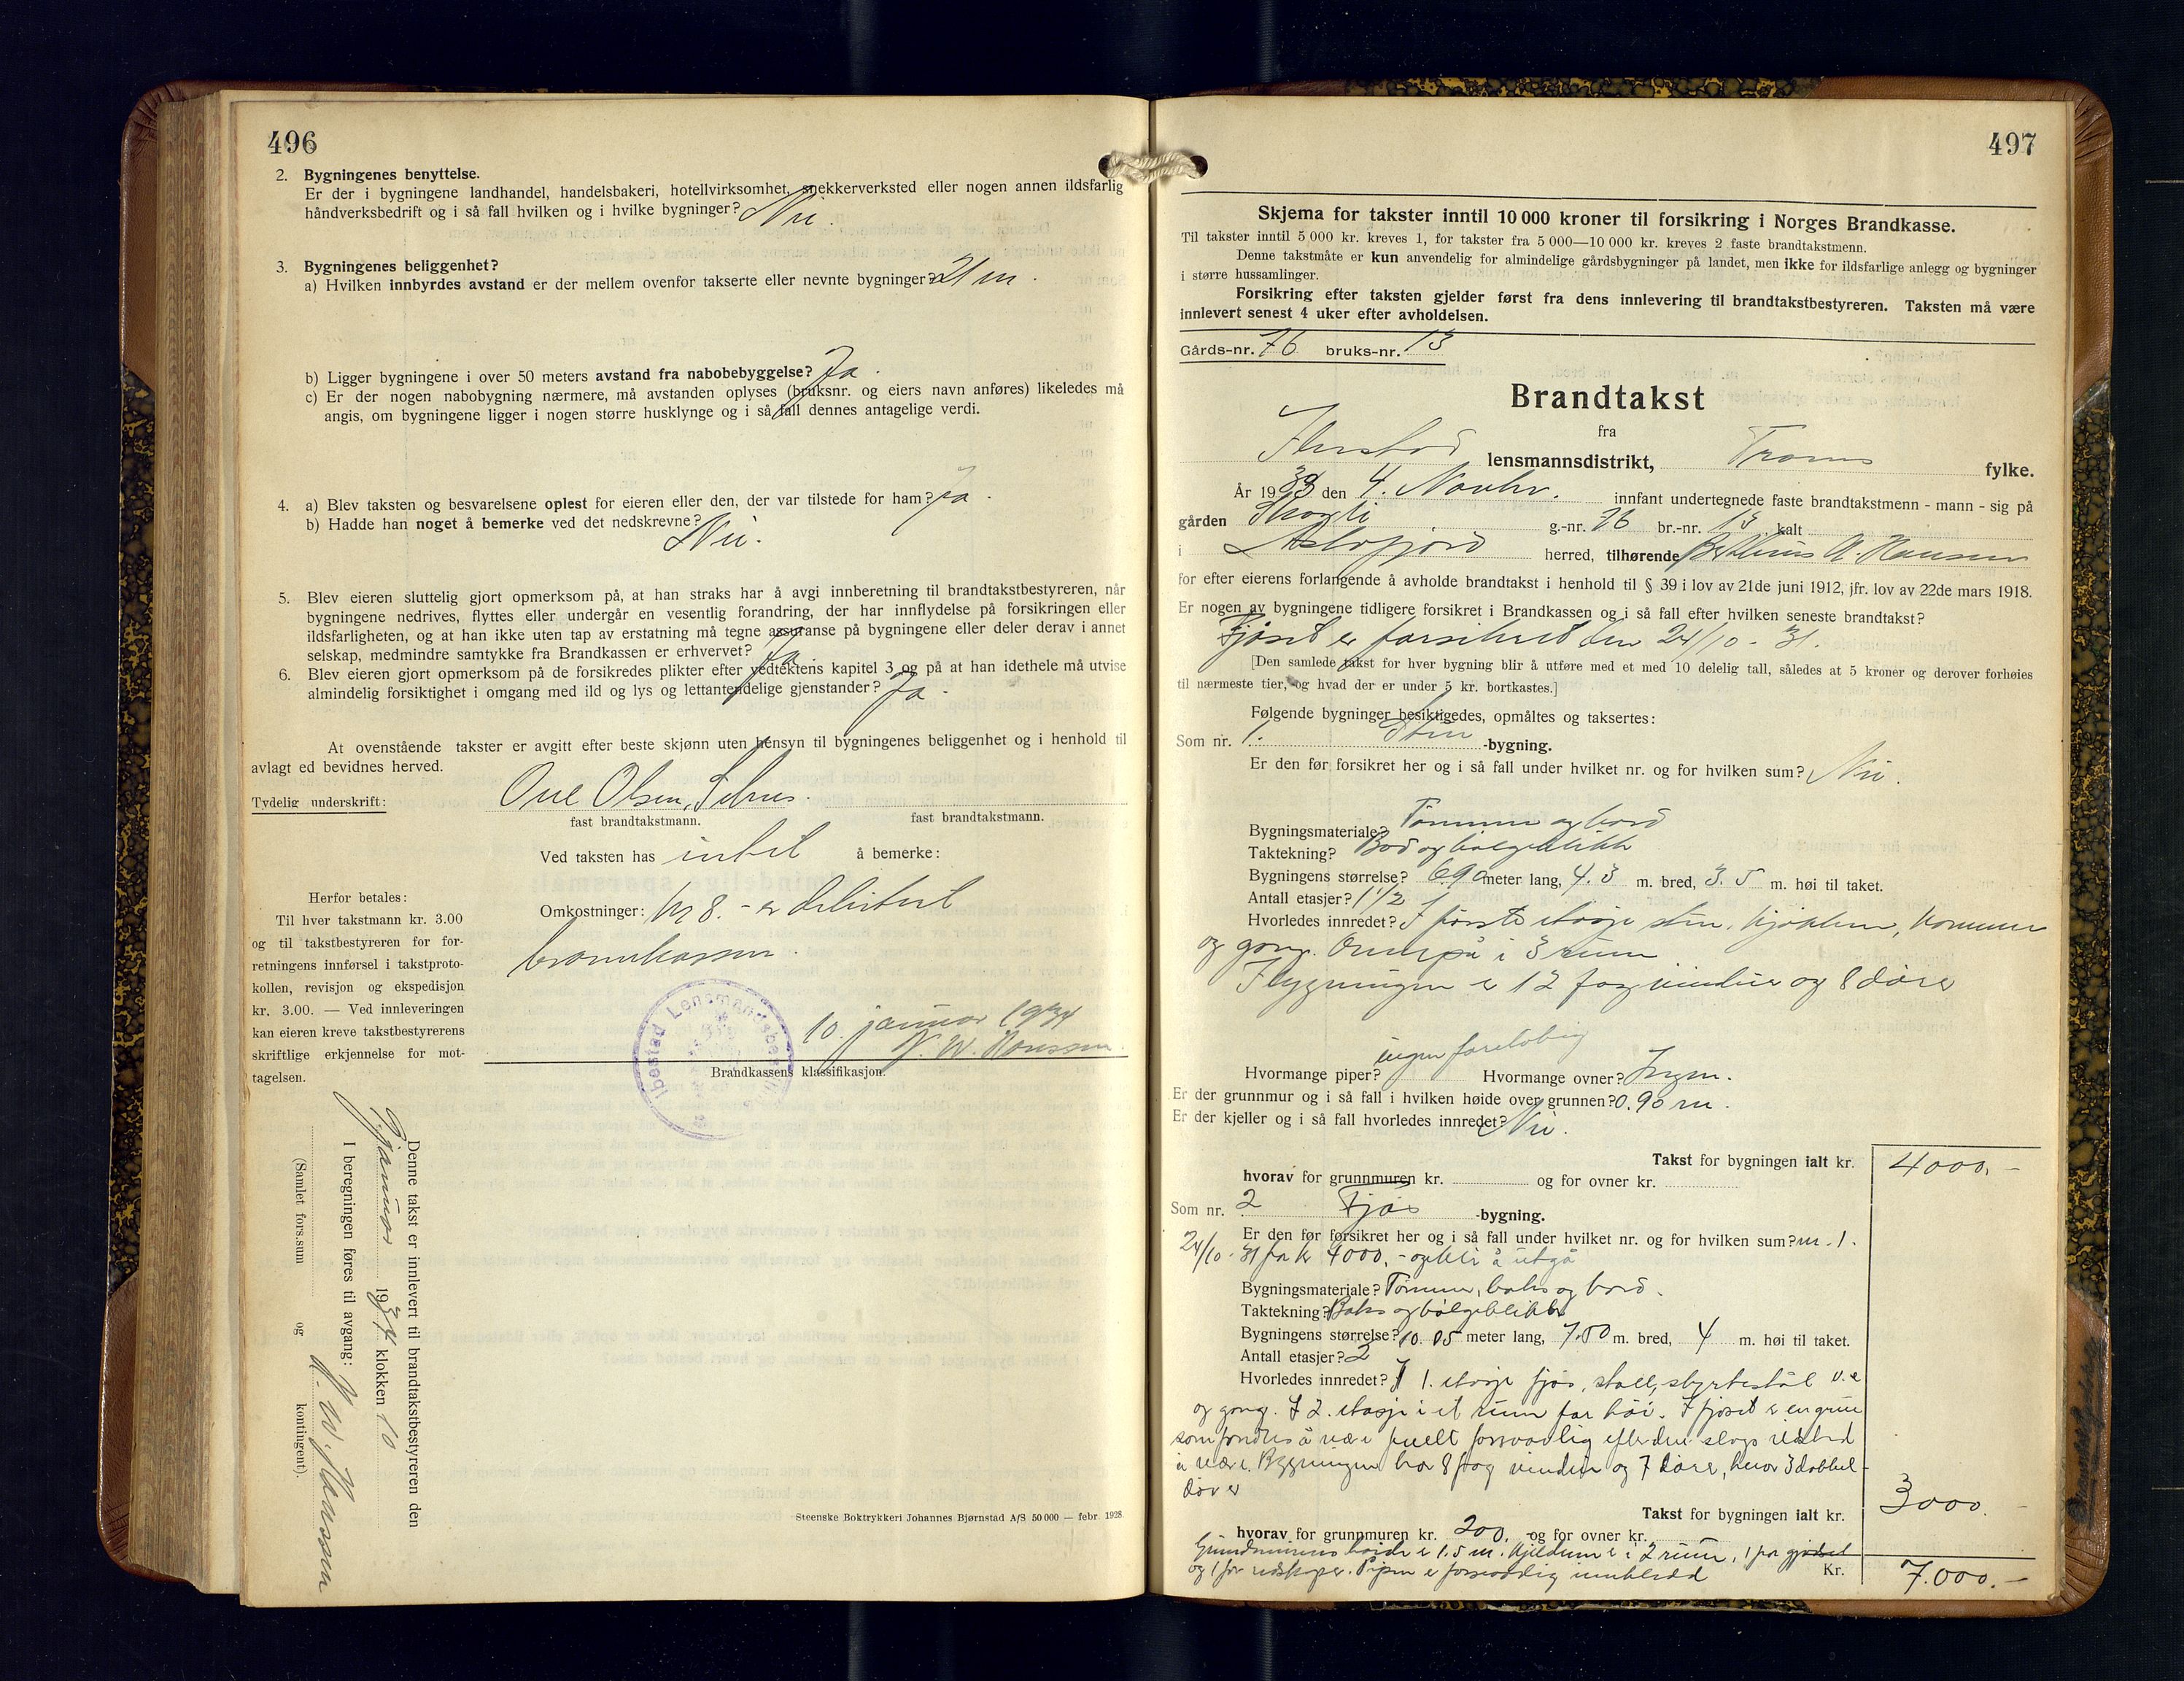 496
2. Bygningenes benyttelse.
Er der i bygningene landhandel, handelsbakeri, hotellvirksomhet, snekkerverksted eller nogen annen ildsfarlig
håndverksbedrift og i så fall hvilken og i hvilke bygninger? Nei.
3. Bygningenes beliggenhet?
a) Hvilken innbyrdes avstand er der mellem ovenfor takserte eller nevnte bygninger? 21 m.
b) Ligger bygningene i over 50 meters avstand fra nabobebyggelse? Ja.
c) Er der nogen nabobygning nærmere, må avstanden oplyses (bruksnr. og eiers navn anføres) likeledes må
angis, om bygningene ligger i nogen større husklynge og i så fall dennes antagelige verdi.
4. a) Blev taksten og besvarelsene oplest for eieren eller den, der var tilstede for ham? Ja.
b) Hadde han noget å bemerke ved det nedskrevne? Nei.
5. Blev eieren sluttelig gjort opmerksom på, at han straks har å avgi innberetning til brandtakstbestyreren, når
bygningene nedrives, flyttes eller undergår en vesentlig forandring, der har innflydelse på forsikringen eller
ildsfarligheten, og at han ikke uten tap av erstatning må tegne assuranse på bygningene eller deler derav i annet
selskap, medmindre samtykke fra Brandkassen er erhvervet? Ja.
6. Blev eieren gjort opmerksom på de forsikredes plikter efter vedtektens kapitel 3 og på at han idethele må utvise
almindelig forsiktighet i omgang med ild og lys og lettantendelige gjenstander? Ja.
At ovenstående takster er avgitt efter beste skjønn uten hensyn til bygningenes beliggenhet og i henhold til
avlagt ed bevidnes herved.
Tydelig underskrift: Ove Olsen, Selnes.
fast brandtakstmann. fast brandtakstmann.
Ved taksten has intet å bemerke:
Omkostninger: kr 8.- er debitert
brannkassen.
Herfor betales:
Til hver takstmann kr. 3.00
og til takstbestyreren for for-
retningens innførsel i takstproto-
kollen, revisjon og ekspedisjon
kr. 3.00. — Ved innleveringen
kan eieren kreve takstbestyrerens
skriftlige erkjennelse for mot-
tagelsen.
Ibestad Lensmandsbestilling
10. januar 1934
Brandkassens klassifikasjon.
Denne takst er innlevert til brandtakstbestyreren den
januar 1934 klokken 10
I beregningen føres til avgang:
(Samlet fors.sum og kontingent).
Steenske Boktrykkeri Johannes Bjørnstad A/S 50 000 — febr. 1928.
497
Skjema for takster inntil 10 000 kroner til forsikring i Norges Brandkasse.
Til takster inntil 5 000 kr. kreves 1, for takster fra 5 000—10 000 kr. kreves 2 faste brandtakstmenn.
Denne takstmåte er kun anvendelig for almindelige gårdsbygninger på landet, men ikke for ildsfarlige anlegg og bygninger
i større hussamlinger.
Forsikring efter taksten gjelder først fra dens innlevering til brandtakstbestyreren. Taksten må være
innlevert senest 4 uker efter avholdelsen.
Gårds-nr. 76 bruks-nr. 13
Brandtakst
fra
Ibestad lensmannsdistrikt, Troms fylke.
År 1933 den 4. Novbr. innfant undertegnede faste brandtakstmenn - mann - sig på
gården g.-nr. 76 br.-nr. 13 kalt
i Astafjord herred, tilhørende A. Hansen
for efter eierens forlangende å avholde brandtakst i henhold til § 39 i lov av 21de juni 1912, jfr. lov av 22de mars 1918.
Er nogen av bygningene tidligere forsikret i Brandkassen og i så fall efter hvilken seneste brandtakst?
Fjøset er forsikret den 24/10 - 31.
[Den samlede takst for hver bygning blir å utføre med et med 10 delelig tall, således at 5 kroner og derover forhøies
til nærmeste tier, og hvad der er under 5 kr. bortkastes.]
Følgende bygninger besiktigedes, opmåltes og taksertes:
Som nr. 1. Stue -bygning.
Er den før forsikret her og i så fall under hvilket nr. og for hvilken sum? Nei.
Bygningsmateriale? Tømmer og bord
Taktekning? Bord og bølgeblikk
Bygningens størrelse? 6.90 meter lang, 4.3 m. bred, 3.5 m. høi til taket.
Antall etasjer? 1 1/2
Hvorledes innredet? I første etasje stue, kjøkken, kammer
og gang. Ovenpå i 3 rum
I bygningen er 12 fag vinduer og 8 dører
Hvormange piper? ingen foreløbig Hvormange ovner? Ingen.
Er der grunnmur og i så fall i hvilken høide over grunnen? 0.90 m.
Er der kjeller og i så fall hvorledes innredet? Nei.
Takst for bygningen ialt kr. 4000,-
hvorav for grunnmuren kr. og for ovner kr.
Som nr. 2 Fjøs -bygning.
Er den før forsikret her og i så fall under hvilket nr. og for hvilken sum? nr. 1.
24/10 - 31 for kr 4000,- og blir å utgå
Bygningsmateriale? Tømmer, baks og bord.
Taktekning? Baks og bølgeblikk
Bygningens størrelse? 10.05 meter lang, 7.50 m. bred, 4 m. høi til taket.
Antall etasjer? 2
Hvorledes innredet? I 1. etasje fjøs, stall, styrtestøl v.c
og gang. I 2. etasje i et rum for høi. I fjøset er en grue
som findes å være fuldt forsvarlig efter den slags ildsted
å være. Bygningen har 8 fag vinduer og 7 dører, herav 3 dobbel-
dører
Takst for bygningen ialt kr. 3000.-
hvorav for grunnmuren kr. 200,- og for ovner kr.
Grundmurens høide er 1.5 m. Kjelderen er i 2 rum, 1 for gjødsel
og 1 for redskaper. Pipen er forsvarlig innklædd
Kr. 7.000.-